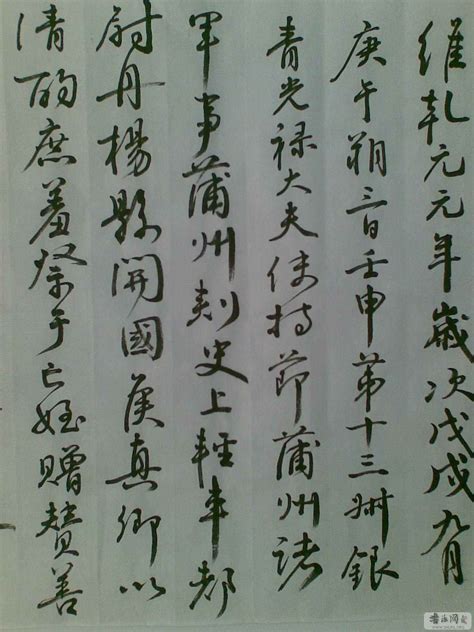 維乾元元年歲次戊戌九月
庚午朔三日壬申第十三卅銀
青光禄大夫使持節蒲州諸
軍事蒲州刺史上輕車都
尉丹楊縣開國侯真卿以
清酌庶羞祭于亡姪贈賛善